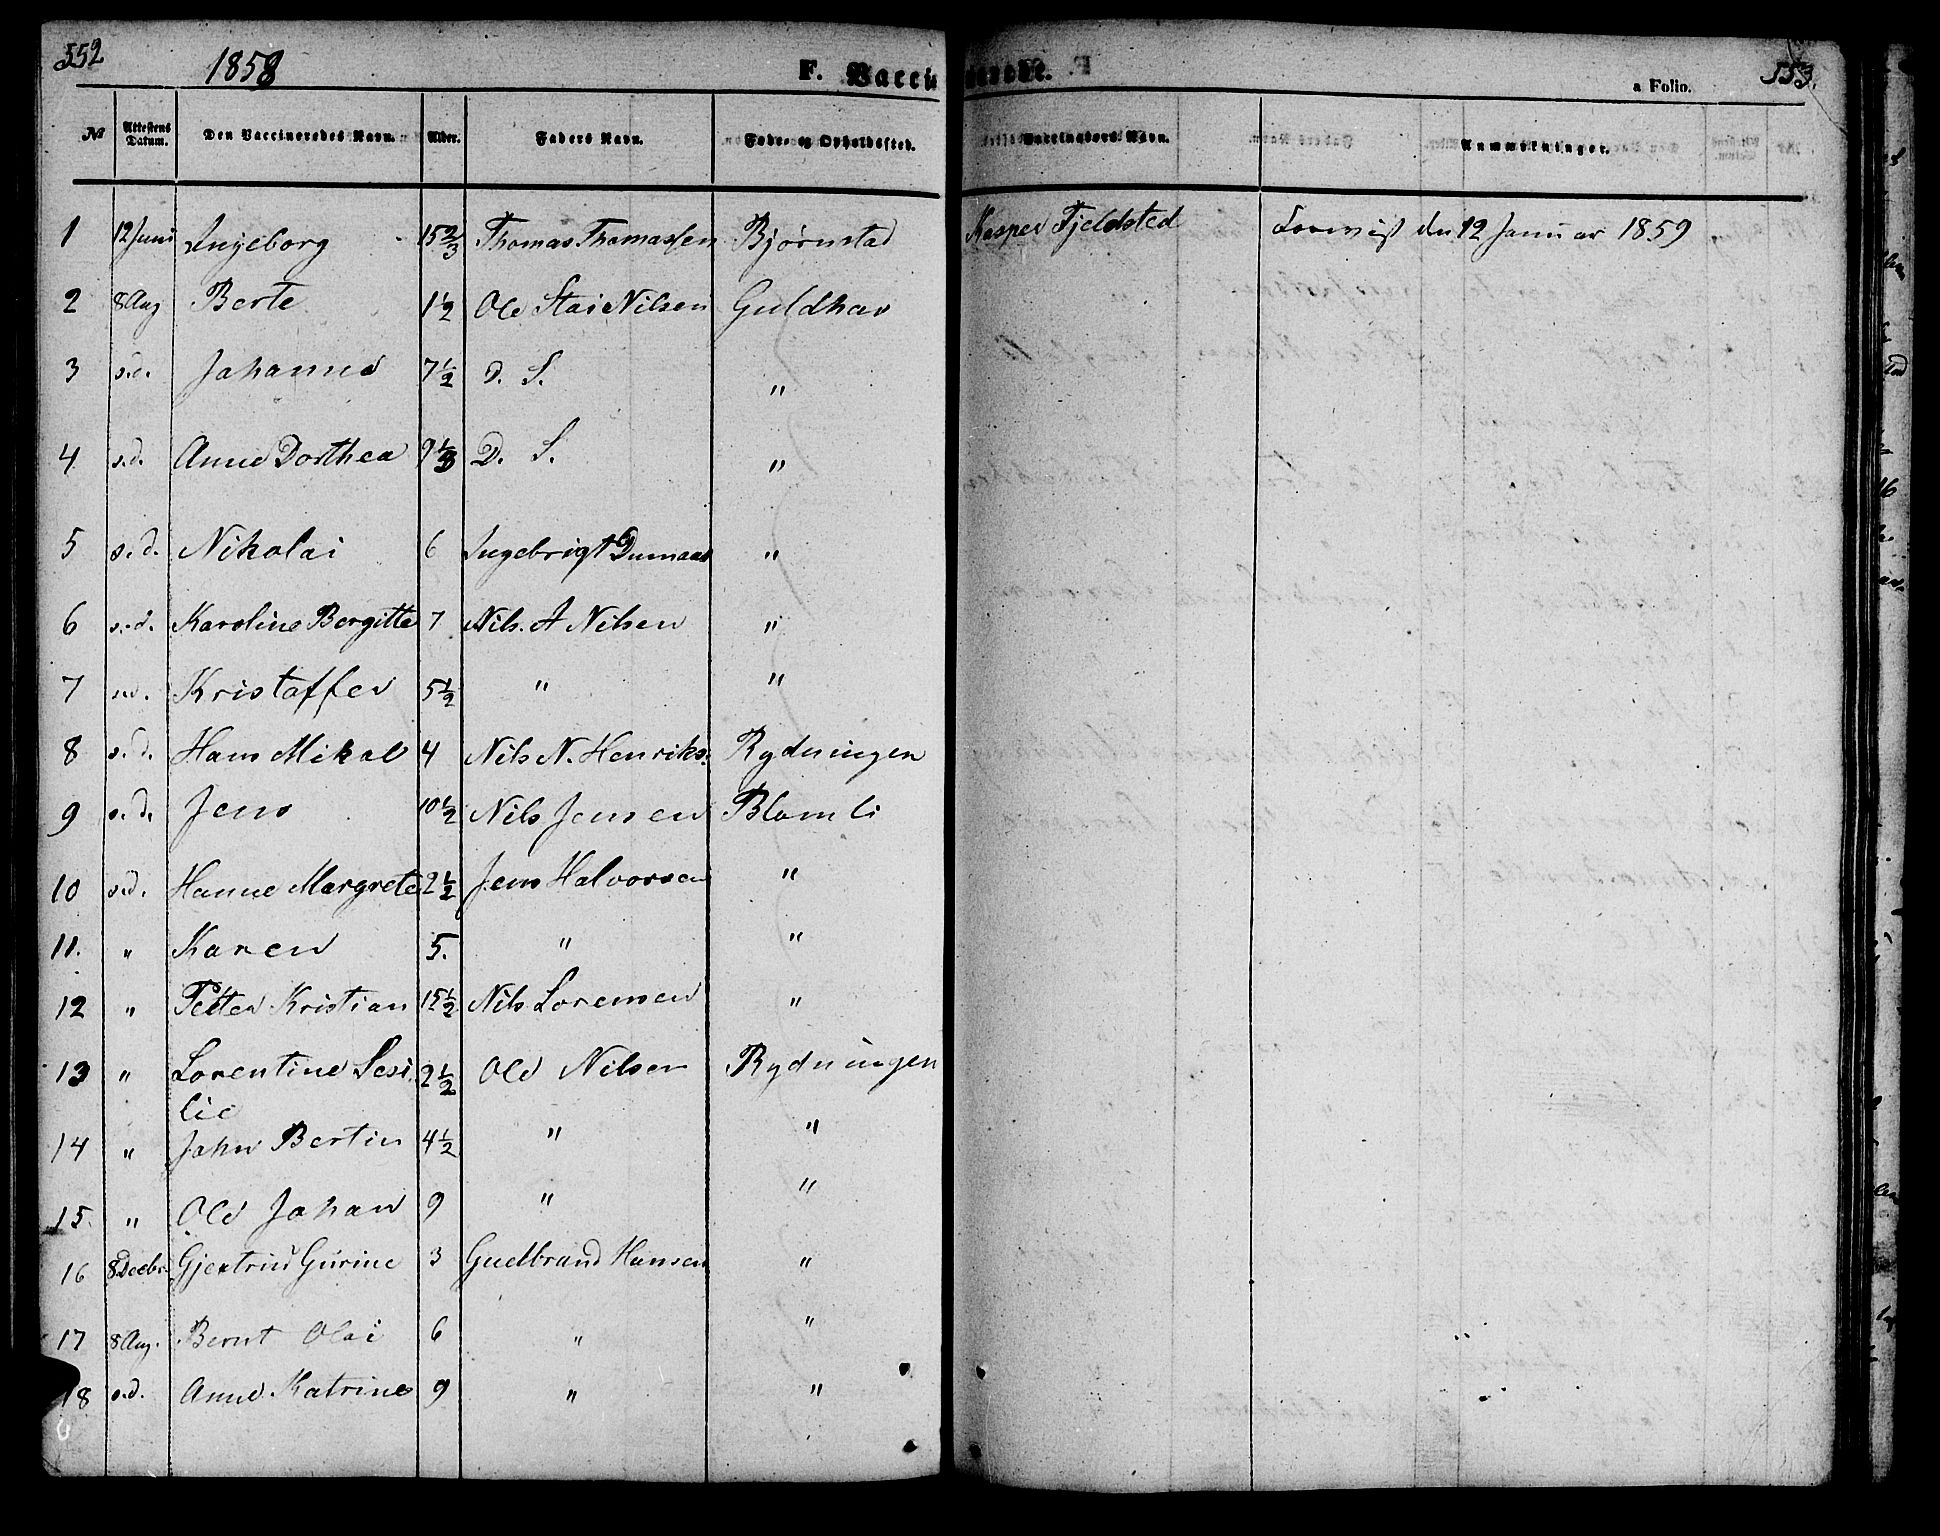 552
1858
F. Vaccinerede.
a Folio.
553.
№ Attestens Datum. Den Vaccineredes Navn. Alder. Faders Navn. Føde- og Opholdssted. Vaccinateurs Navn. Anmærkninger.
1 12 Juni Ingeborg 15 2/3 Thomas Thomassen Bjørnstad Kasper Fjeldsted den 12 Januar 1859
2 8 Aug Berte 1 1/2 Ole Stai Nilsen Guldhav
3 s.d. Johanne 7 1/2 D. S. "
4 s.d. Anne Dorthea 9 1/3 D. S. "
5 s.d. Nikolai 6 Ingebrigt "
6 s.d. Karoline Bergitte 7 Nils A Nilsen "
7 s.d. Kristoffer 5 1/2 " "
8 s.d. Hans Mikal 4 Nils N. Henriks: Rydningen
9 s.d. Jens 10 1/2 Nils Jensen Blomli
10 s.d. Hanne Margrete 2 1/2 Jens Halvorsen "
11. " Karen 5. " "
12 " Petter Kristian 15 1/2 Nils Lorensen "
13 " Lorentine Sesi 2 1/2 Ole Nilsen Rydningen
lie
14 " John Bertin 4 1/2 " "
15. " Ole Johan 9 " "
16 8 Decbr. Gjertrud Gurine 3 Gudbrand Hansen "
17 8 Aug. Bernt Olai 6 " "
18 s.d. Anne Katrine 9 " "